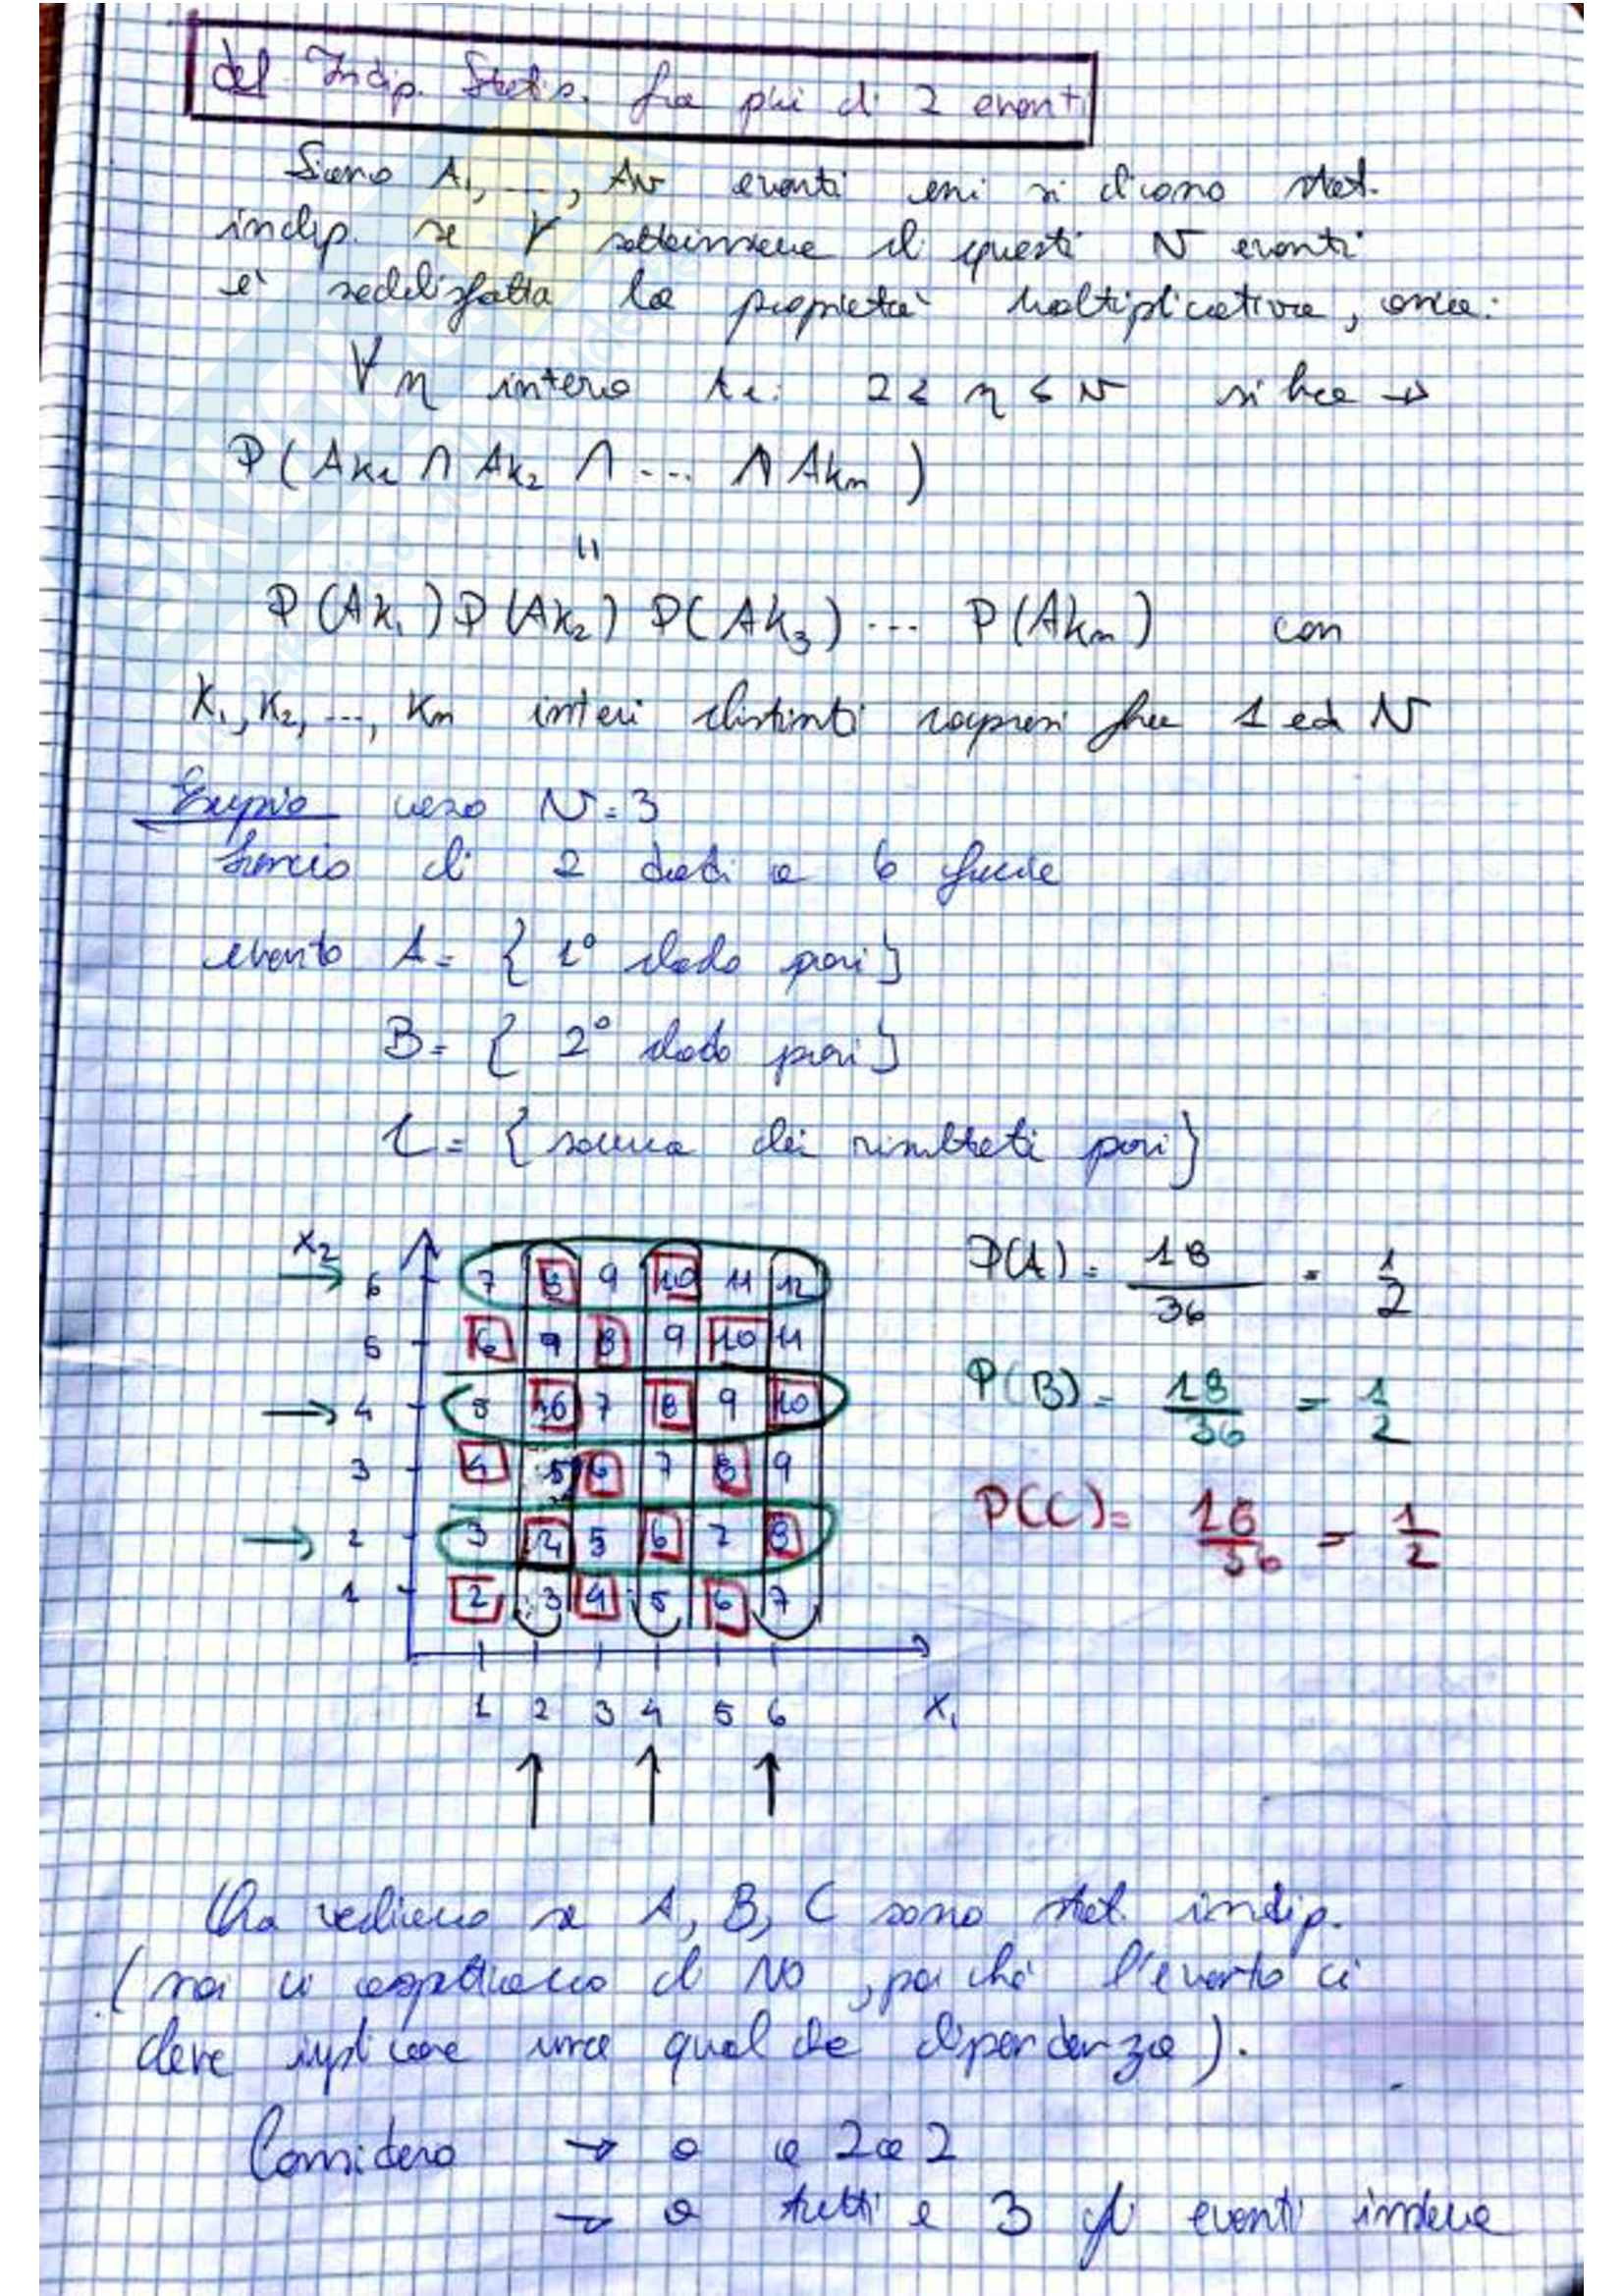 def Indip. Statis. fra più di 2 eventi
Siano A1, ..., AN eventi essi si dicono stat.
indip. se ∀ sottoinsieme di questi N eventi
è soddisfatta la proprietà moltiplicativa, ossia:
∀ n intero t.c. 2 ≤ n ≤ N si ha →
P(Ak1 ∩ Ak2 ∩ ... ∩ Akn)
=
P(Ak1) P(Ak2) P(Ak3) ... P(Akn) con
K1, K2, ..., Kn interi distinti compresi fra 1 ed N
Esempio caso N=3
lancio di 2 dadi a 6 facce
evento A = { 1° dado pari }
B = { 2° dado pari }
C = { somma dei risultati pari }
X2
→ 6 7 8 9 10 11 12
5 6 7 8 9 10 11
→ 4 5 6 7 8 9 10
3 4 5 6 7 8 9
→ 2 3 4 5 6 7 8
1 2 3 4 5 6 7
1 2 3 4 5 6 X1
↑ ↑ ↑
P(A) = 18/36 = 1/2
P(B) = 18/36 = 1/2
P(C) = 18/36 = 1/2
Ora vediamo se A, B, C sono stat. indip.
(noi ci aspettiamo di NO, poiché l'evento ci
deve implicare una qualche dipendenza).
Considero → o a 2 a 2
→ o tutti e 3 gli eventi insieme